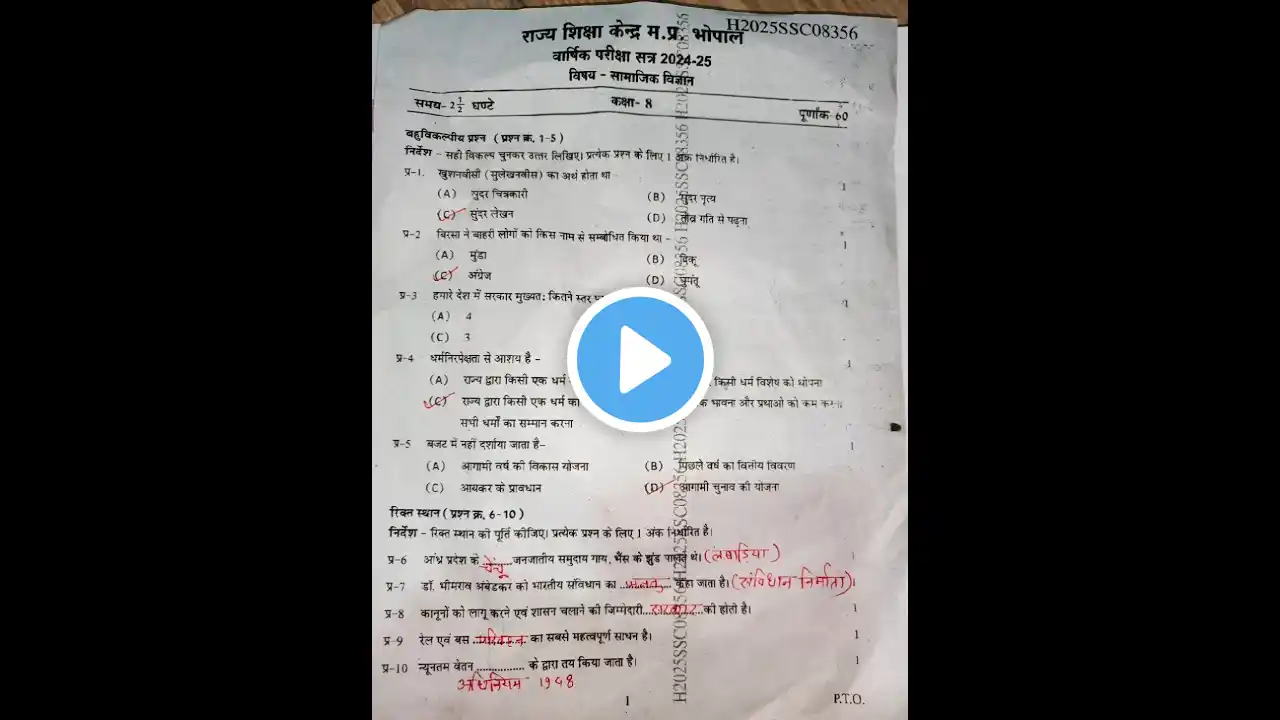 H2025SSC08356
राज्य शिक्षा केन्द्र म.प्र. भोपाल
वार्षिक परीक्षा सत्र 2024-25
विषय - सामाजिक विज्ञान
समय- 2 1/2 घण्टे कक्षा- 8 पूर्णांक 60
बहुविकल्पीय प्रश्न ( प्रश्न क्र. 1-5 )
निर्देश - सही विकल्प चुनकर उत्तर लिखिए। प्रत्येक प्रश्न के लिए 1 अंक निर्धारित है।
प्र-1. खुशनवीसी (सुलेखनवीस) का अर्थ होता था - 1
(A) सुदर चित्रकारी (B) सुंदर नृत्य
(C) सुंदर लेखन (D) तीव्र गति से पढ़ना
प्र-2 बिरसा ने बाहरी लोगों को किस नाम से सम्बोधित किया था - 1
(A) मुंडा (B) दिकू
(C) अंग्रेज (D) घुमंतू
प्र-3 हमारे देश में सरकार मुख्यतः कितने स्तर 1
(A) 4
(C) 3
प्र-4 धर्मनिरपेक्षता से आशय है - 1
(A) राज्य द्वारा किसी एक धर्म किसी धर्म विशेष को थोपना
(C) राज्य द्वारा किसी एक धर्म का क भावना और प्रथाओं को कम करना
सभी धर्मों का सम्मान करना
प्र-5 बजट में नहीं दर्शाया जाता है- 1
(A) आगामी वर्ष की विकास योजना (B) पिछले वर्ष का वित्तीय विवरण
(C) आयकर के प्रावधान (D) आगामी चुनाव की योजना
रिक्त स्थान ( प्रश्न क्र. 6-10 )
निर्देश - रिक्त स्थान की पूर्ति कीजिए। प्रत्येक प्रश्न के लिए 1 अंक निर्धारित है।
प्र-6 आंध्र प्रदेश के ......... जनजातीय समुदाय गाय, भैंस के झुंड पालते थे। (लबाड़िया) 1
चेंचू
प्र-7 डॉ. भीमराव अंबेडकर को भारतीय संविधान का ............ कहा जाता है। (संविधान निर्माता)। 1
प्र-8 कानूनों को लागू करने एवं शासन चलाने की जिम्मेदारी ...सरकार... की होती है। 1
प्र-9 रेल एवं बस ...परिवहन... का सबसे महत्वपूर्ण साधन है। 1
प्र-10 न्यूनतम वेतन ................ के द्वारा तय किया जाता है। 1
अधिनियम 1948
1
P.T.O.
H2025SSC08356 H2025SSC08356 H2025SSC08356 H2025SSC08356 H2025SSC08356